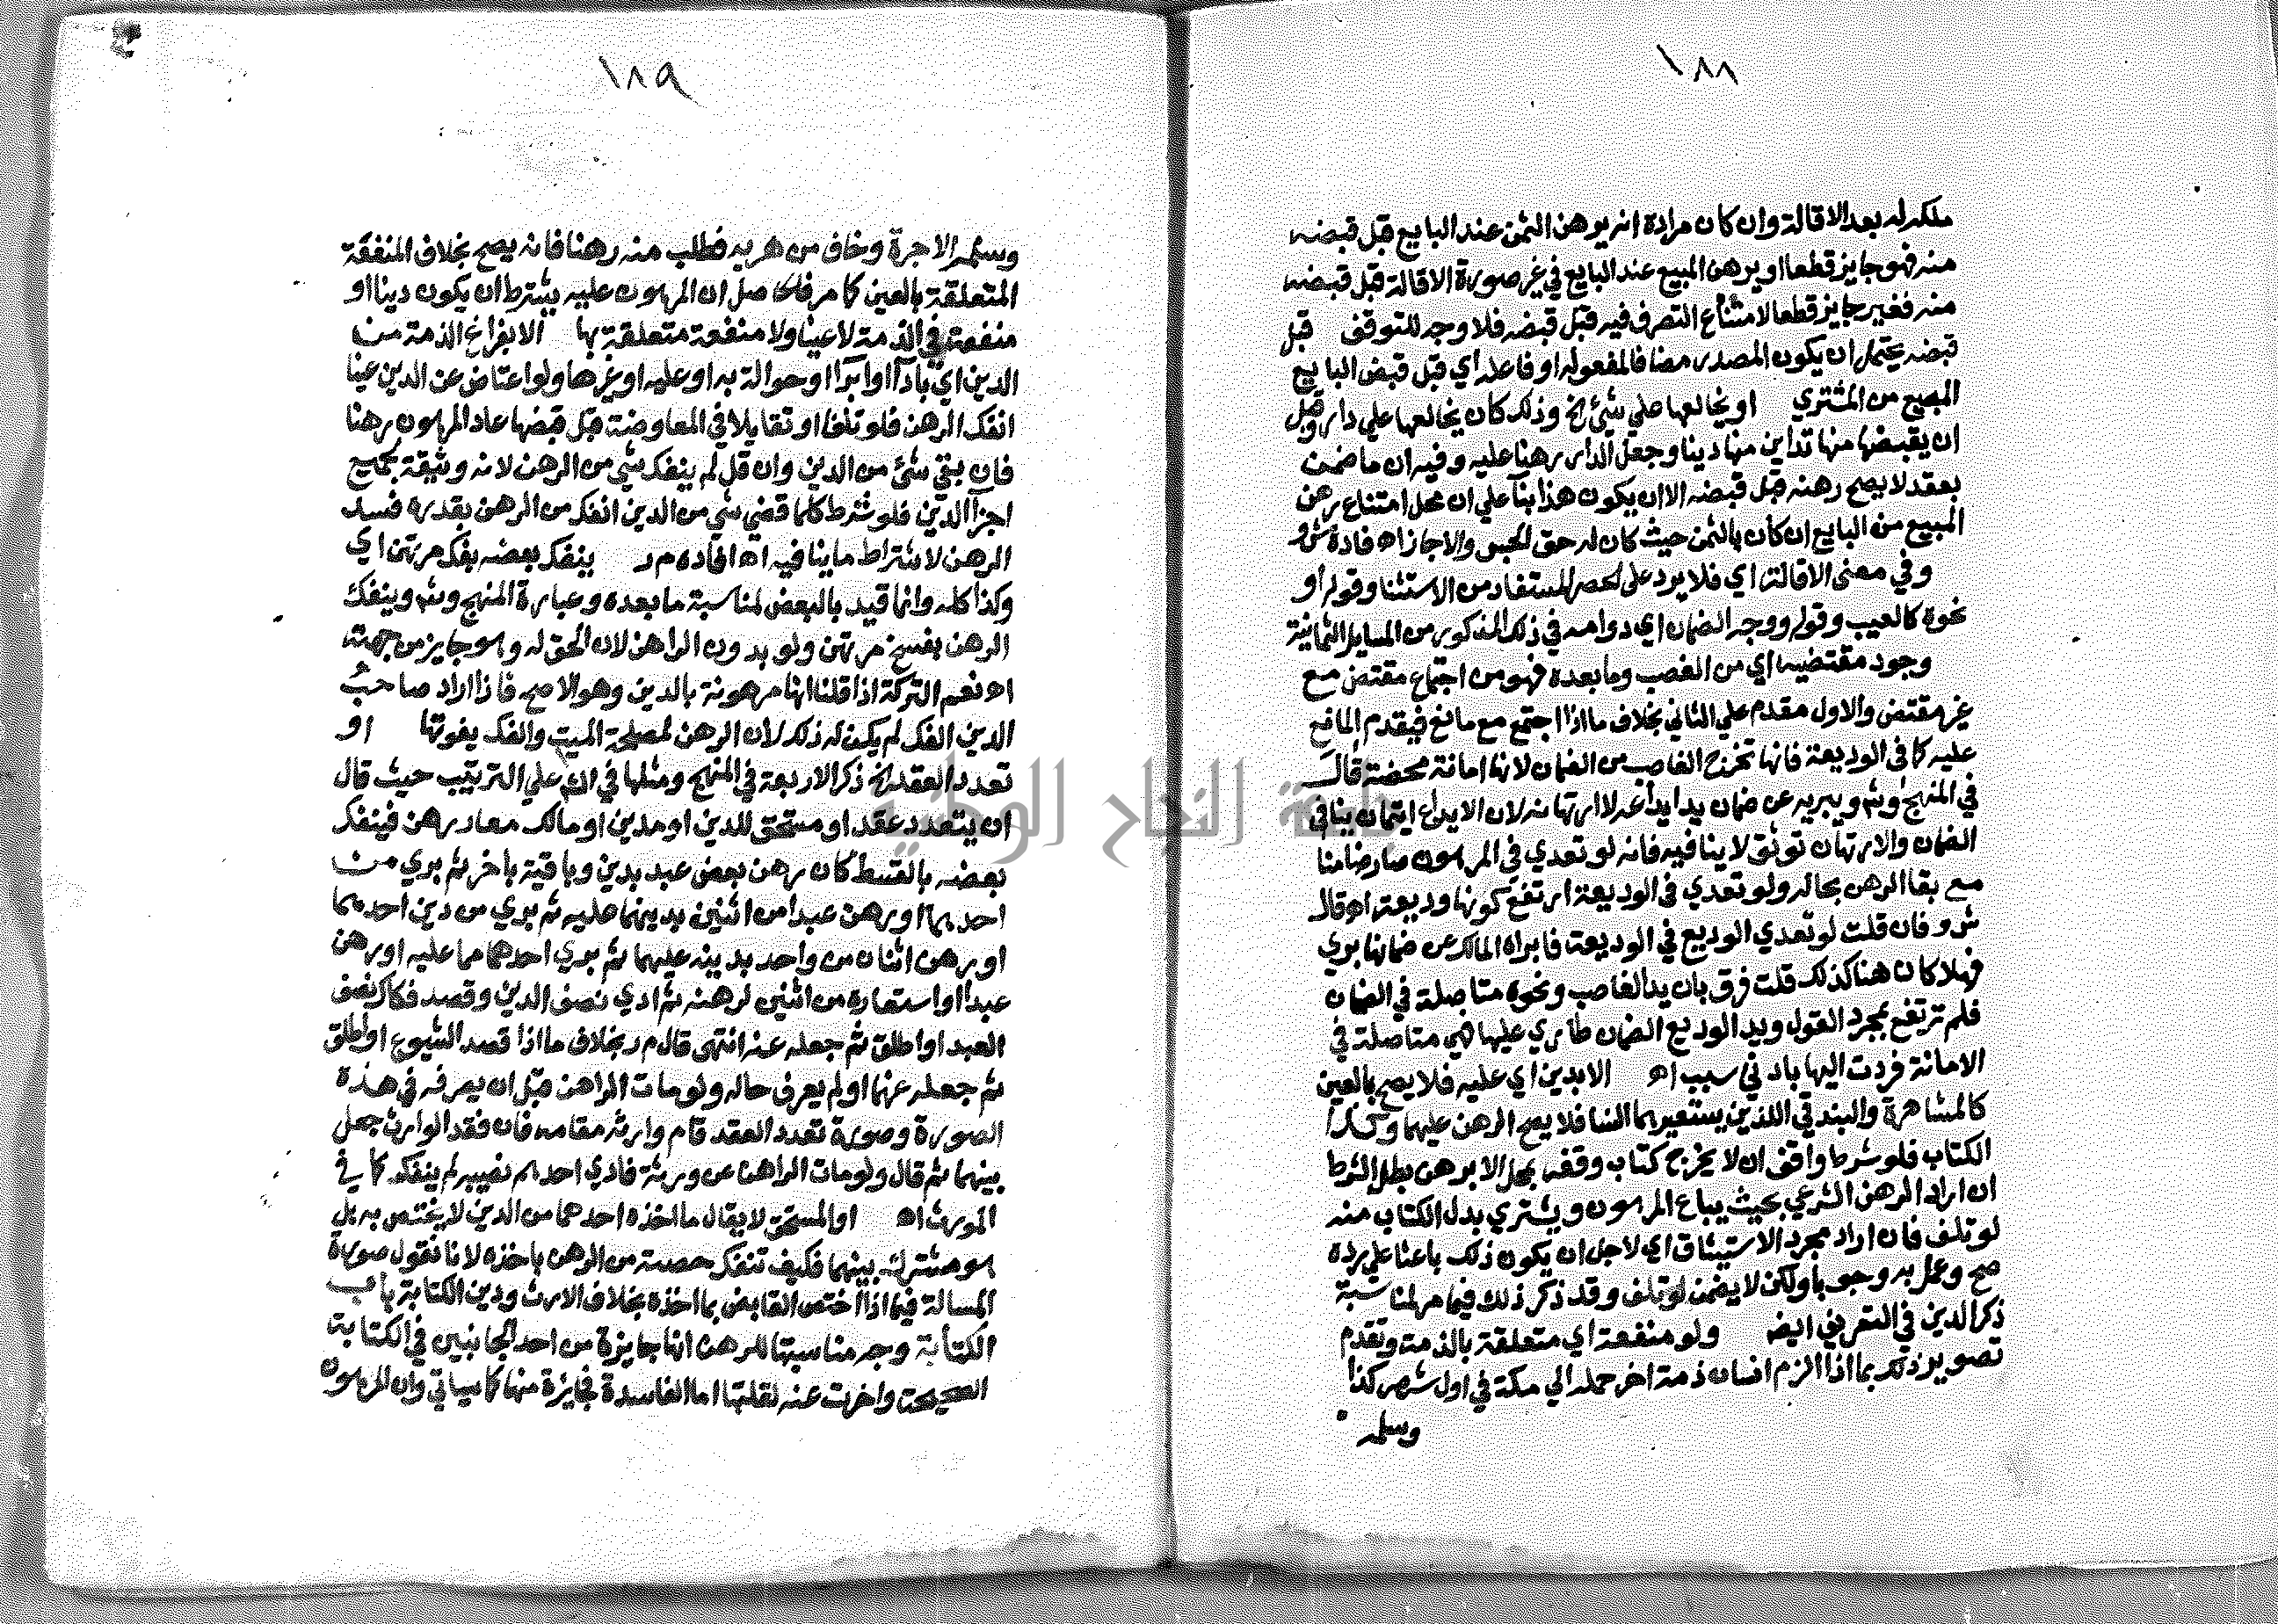 ١٨٨
ملكه له بعد الاقالة وان كان مراده انه يرهن الثمن عند البايع قبل قبضه
منه فهو جايز قطعا او يرهن المبيع عند البايع في غير صورة الاقالة قبل قبضه
منه فغير جايز قطعا لامتناع التصرف فيه قبل قبضه فلا وجه للتوقف قبل
قبضه يحتمل ان يكون المصدر مضافا لمفعوله او فاعله اي قبل قبض البايع
المبيع من المشتري او يخالعها على شئ الخ وذلك كان يخالعها علي دار وقبل
ان يقبضها منها تداين منها دينا وجعل الدار رهنا عليه وفيه ان ما ضمن
بعقد لا يصح رهنه قبل قبضه الا ان يكون هذا بنآ علي ان محل امتناع رهن
المبيع من البايع ان كان بالثمن حيث كان له حق الحبس والا جاز اه افاده ش و
وفي معنى الاقالة اي فلا يرد على الحصر المستفاد من الاستثنا وقوله او
نحوه كالعيب وقوله ووجه الضمان اي دوامه في ذلك المذكور من المسايل الثمانية
وجود مقتضيه اي من الغصب وما بعده فهو من اجتماع مقتض مع
غير مقتض والاول مقدم علي الثاني بخلاف ما اذا اجتمع مع مانع فيقدم المانع
عليه كما في الوديعة فانها تخرج الغاصب من الضمان لانها امانة محضة قال
في المنهج وش ويبريه عن ضمان يد ايداعه لا ارتهانه لان الايداع ايتمان ينافي
الضمان والارتهان توثق لا ينافيه فانه لو تعدي في المرهون صار ضامنا
مع بقا الرهن بحاله ولو تعدي في الوديعة ارتفع كونها وديعة اه قال
ش و فان قلت لو تعدي الوديع في الوديعة فابراه المالك عن ضمانها بري
فهلا كان هنا كذلك قلت فرق بان يد الغاصب ونحوه متاصلة في الضمان
فلم ترتفع بمجرد القول ويد الوديع الضمان طاري عليها فهي متاصلة في
الامانة فردت اليها بادني سبب اه الا بدين اي عليه فلا يصح بالعين
كالمشاهرة والبندقي اللذين يستعيرهما النسا فلا يصح الرهن عليهما وكذا
الكتاب فلو شرط واقف ان لا يخرج كتاب وقفه بمحل الا برهن بطل الشرط
ان اراد الرهن الشرعي بحيث يباع المرهون ويشتري بدل الكتاب منه
لو تلف فان اراد مجرد الاستيثاق اي لاجل ان يكون ذلك باعثا على رده
صح وعمل به وجوبا ولكن لا يضمن لو تلف وقد ذكر ذلك فيما مر لمناسبة
ذكر الدين في التعريف ايضا ولو منفعة اي متعلقة بالذمة وتقدم
تصوير ذلك بما اذا الزم انسان ذمة اخر حمله الي مكة في اول شهر كذا
وسلمه
١٨٩
وسلمه الاجرة وخاف من هربه فطلب منه رهنا فانه يصح بخلاف المنفعة
المتعلقة بالعين كما مر فالحاصل ان المرهون عليه يشترط ان يكون دينا او
منفعة في الذمة لا عينا ولا منفعة متعلقة بها الا بفراغ الذمة من
الدين اي بادآ او ابرآ او حوالة به او عليه او غيرها ولو اعتاض عن الدين عينا
انفك الرهن فلو تلفا او تقايلا في المعاوضة قبل قبضها عاد المرهون رهنا
فان بقي شئ من الدين وان قل لم ينفك شي من الرهن لانه وثيقة بجميع
اجزآ الدين فلو شرط كلما قضي شي من الدين انفك من الرهن بقدره فسد
الرهن لاشتراط ما ينافيه اه افاده م ر ينفك بعضه بفك مرتهن اي
وكذا كله وانما قيد بالبعض لمناسبة ما بعده وعبارة المنهج وش وينفك
الرهن بفسخ مرتهن ولو بدون الراهن لان الحق له وهو جايز من جهته
اه نعم التركة اذا قلنا انها مرهونة بالدين وهو الاصح فاذا اراد صاحب
الدين الفك لم يكن له ذلك لان الرهن لمصلحة الميت والفك يفوتها او
تعدد العقد الخ ذكر الاربعة في المنهج ومثلها في الش علي الترتيب حيث قال
ان يتعدد عقد او مستحق للدين او مدين او مالك معار رهن فينفك
بعضه بالقسط كان رهن بعض عبد بدين وباقيه باخر ثم بري من
احدهما او رهن عبدا من اثنين بدينهما عليه ثم بري من دين احدهما
او رهن اثنان من واحد بدينه عليهما ثم بري احدهما مما عليه او رهن
عبدا او استعاره من اثنين لرهنه ثم ادي نصف الدين وقصد فكاك نصف
العبد او اطلق ثم جعله عنه انتهى قال م ر بخلاف ما اذا قصد الشيوع او اطلق
ثم جعله عنهما او لم يعرف حاله ولو مات الراهن قبل ان يصرفه في هذه
الصورة وصورة تعدد العقد قام وارثه مقامه فان فقد الوارث جعل
بينهما ثم قال ولو مات الراهن عن ورثة فادي احدهم نصيبه لم ينفك كما في
المورث اه او المستحق لا يقال ما اخذه احدهما من الدين لا يختص به بل
هو مشترك بينهما فكيف تنفك حصته من الرهن باخذه لانا نقول صورة
المسالة فيما اذا اختص القابض بما اخذه بخلاف الارث ودين الكتابة باب
الكتابة وجه مناسبتها للرهن انها جايزة من احد الجانبين في الكتابة
الصحيحة واخرت عنه لقلتها اما الفاسدة فجايزة منهما كما سياتي وان المرهون
جامعة النجاح الوطنية